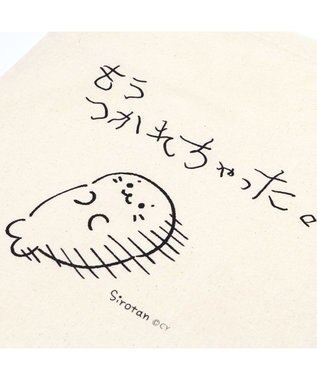 もう
つかれちゃった。
Sirotan ©CY